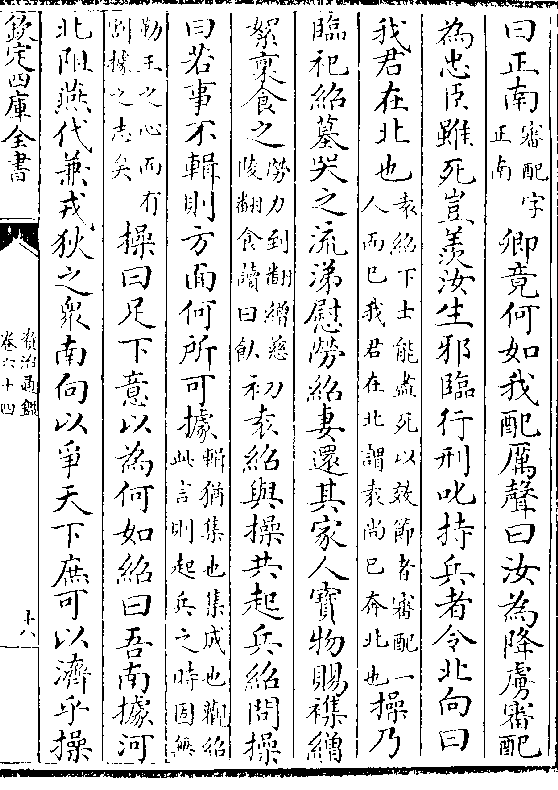 曰正南審配字正南卿竟何如我配厲聲曰汝為降虜審配
為忠臣雖死豈羨汝生邪臨行刑叱持兵者令北向曰
我君在北也袁紹下士能盡死以效節者審配一人而已我君在北謂袁尚已奔北也操乃
臨祀紹墓哭之流涕慰勞紹妻還其家人寶物賜襍繒
絮稟食之勞力到翻繒慈陵翻食讀曰飤初袁紹與操共起兵紹問操
曰若事不輯則方面何所可據輯猶集也集成也觀紹此言則起兵之時固無
勤王之心而有割據之志矣操曰足下意以為何如紹曰吾南據河
北阻燕代兼戎狄之衆南向以爭天下庶可以濟乎操
欽定四庫全書
資治通鑑
卷六十四
十八